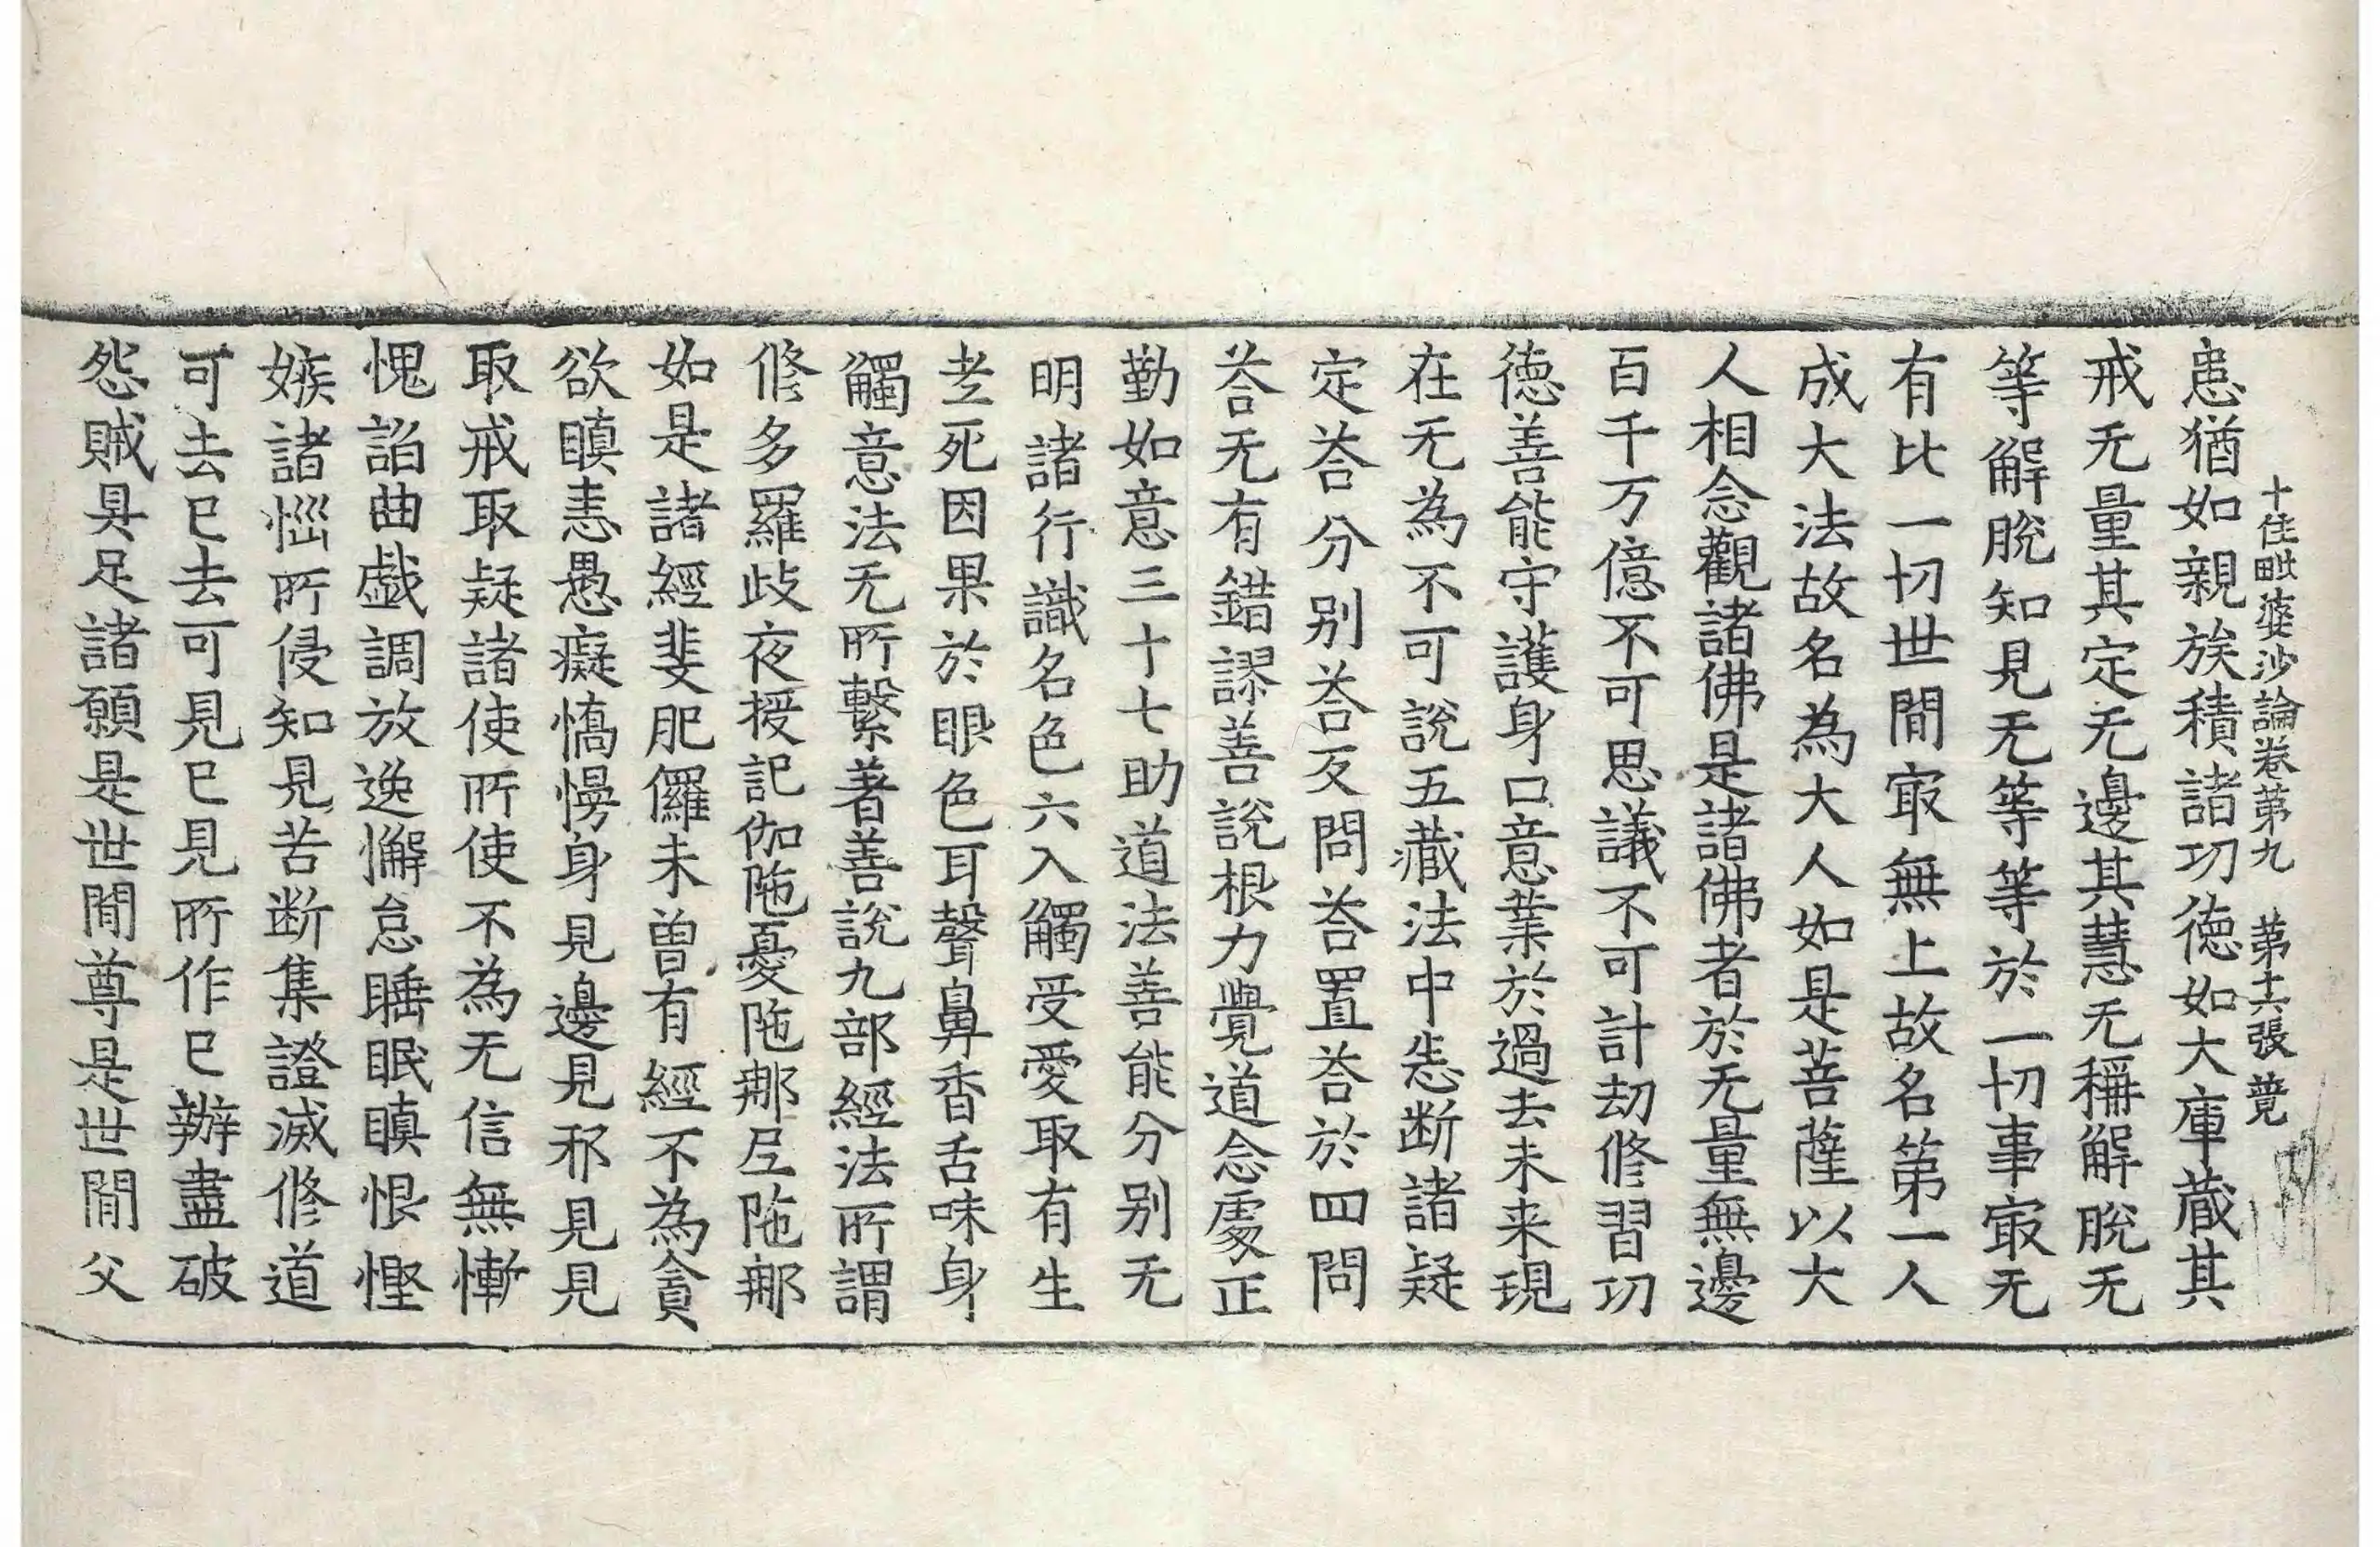 十住毗婆沙論卷苐九　苐十六張　薨
患猶如親族積諸功德如大庫蔵其
戒无量其定无邊其慧无稱解脫无
等解脫知見无等等於一切事㝡无
有比一切世間㝡無上故名第一人
成大法故名為大人如是菩薩以大
人相念觀諸佛是諸佛者於无量無邊
百千万億不可思議不可計劫修習功
德善能守護身口意業於過去未来現
在无為不可說五藏法中悉断諸疑
定荅分别荅反問荅置荅於四問
荅无有錯謬善說根力覺道念處正
勤如意三十七助道法善能分别无
明諸行識名色六入觸受愛取有生
老死因果於眼色耳聲鼻香舌味身
觸意法无所繫著善說九部經法所謂
修多羅歧夜授記伽陁憂陁那尼陁那
如是諸經斐肥儸未曽有經不為貪
欲瞋恚愚癡憍慢身見邊見邪見見
取戒取疑諸使所使不為无信無慚
愧諂曲戯調放逸懈怠睡眠瞋恨慳
嫉諸惱所侵知見苦断集證滅修道
可去已去可見已見所作已辦盡破
怨賊具足諸願是世間尊是世間父